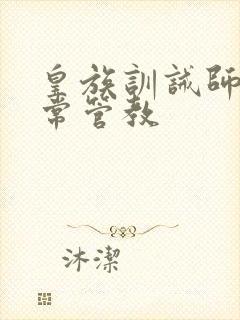 皇族訓誡師
常管教
沐潔